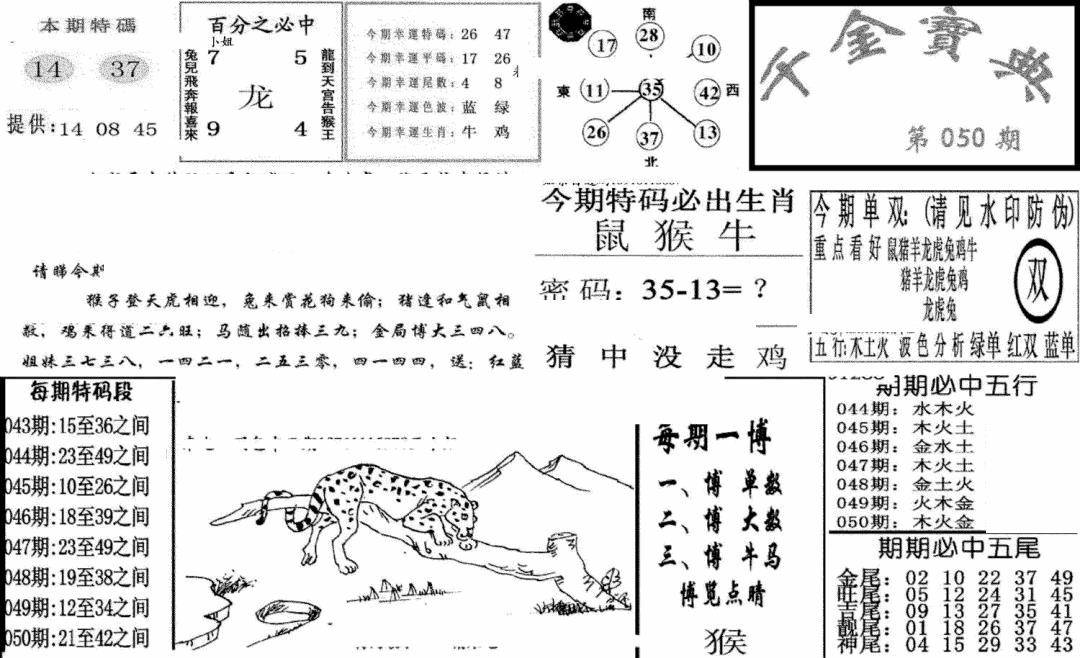 本期特碼
14 37
提供:14 08 45
百分之必中
小姐
兔兒飛奔報喜來
7 5
龙
9 4
龍到天宫告猴王
今期幸運特碼: 26 47
今期幸運平碼: 17 26
今期幸運尾數: 4 8
今期幸運色波: 蓝 绿
今期幸運生肖: 牛 鸡
南
17 28 10
東 11 35 42 西
26 37 13
北
金寶典
第 050 期
请睇今期
猴子登天虎相迎，兔来赏花狗来偷；猪逢和气鼠相
敖，鸡来得道二六旺；马随出招捧三九；金局博大三四八。
姐妹三七三八，一四二一，二五三零，四一四四，送：红蓝
今期特码必出生肖
鼠 猴 牛
密码：35-13=？
猜 中 没 走 鸡
今期单双：(请见水印防伪)
重点看好 鼠猪羊龙虎兔鸡牛
猪羊龙虎兔鸡
龙虎兔
双
五行：木土火 波色分析 绿单 红双 蓝单
每期特码段
043期:15至36之间
044期:23至49之间
045期:10至26之间
046期:18至39之间
047期:23至49之间
048期:19至38之间
049期:12至34之间
050期:21至42之间
每期一博
一、博 单数
二、博 大数
三、博 牛马
博览点晴
猴
期期必中五行
044期：水木火
045期：木火土
046期：金水土
047期：木火土
048期：金土火
049期：火木金
050期：木火金
期期必中五尾
金尾：02 10 22 37 49
旺尾：05 12 24 31 45
吉尾：09 13 27 35 41
靓尾：01 18 26 37 47
神尾：04 15 29 33 43